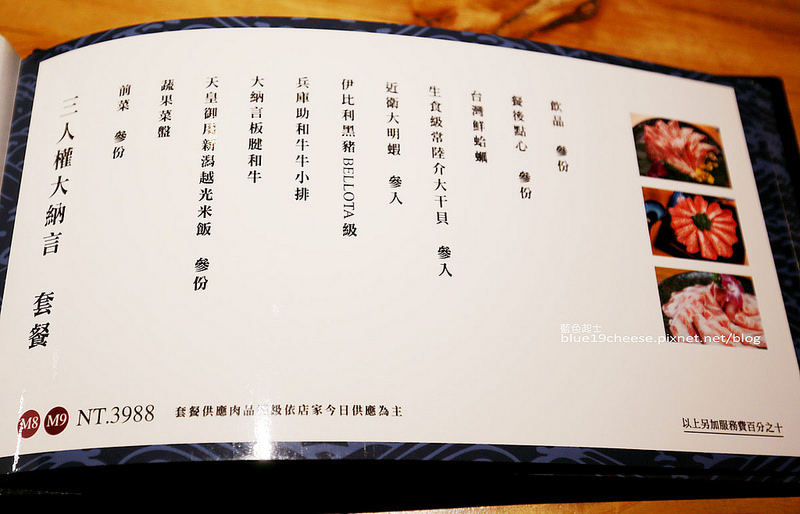 三人權大納言 套餐
前菜 參份
蔬果菜盤
天皇御用新潟越光米飯 參份
大納言板腱和牛
兵庫助和牛牛小排
伊比利黑豬BELLOTA級
近衛大明蝦 參入
生食級常陸介大干貝 參入
台灣鮮蛤蠣
餐後點心 參份
飲品 參份
M8 M9 NT.3988 套餐供應肉品級依店家今日供應為主
以上另加服務費百分之十
藍色起士
blue19cheese.pixnet.net/blog